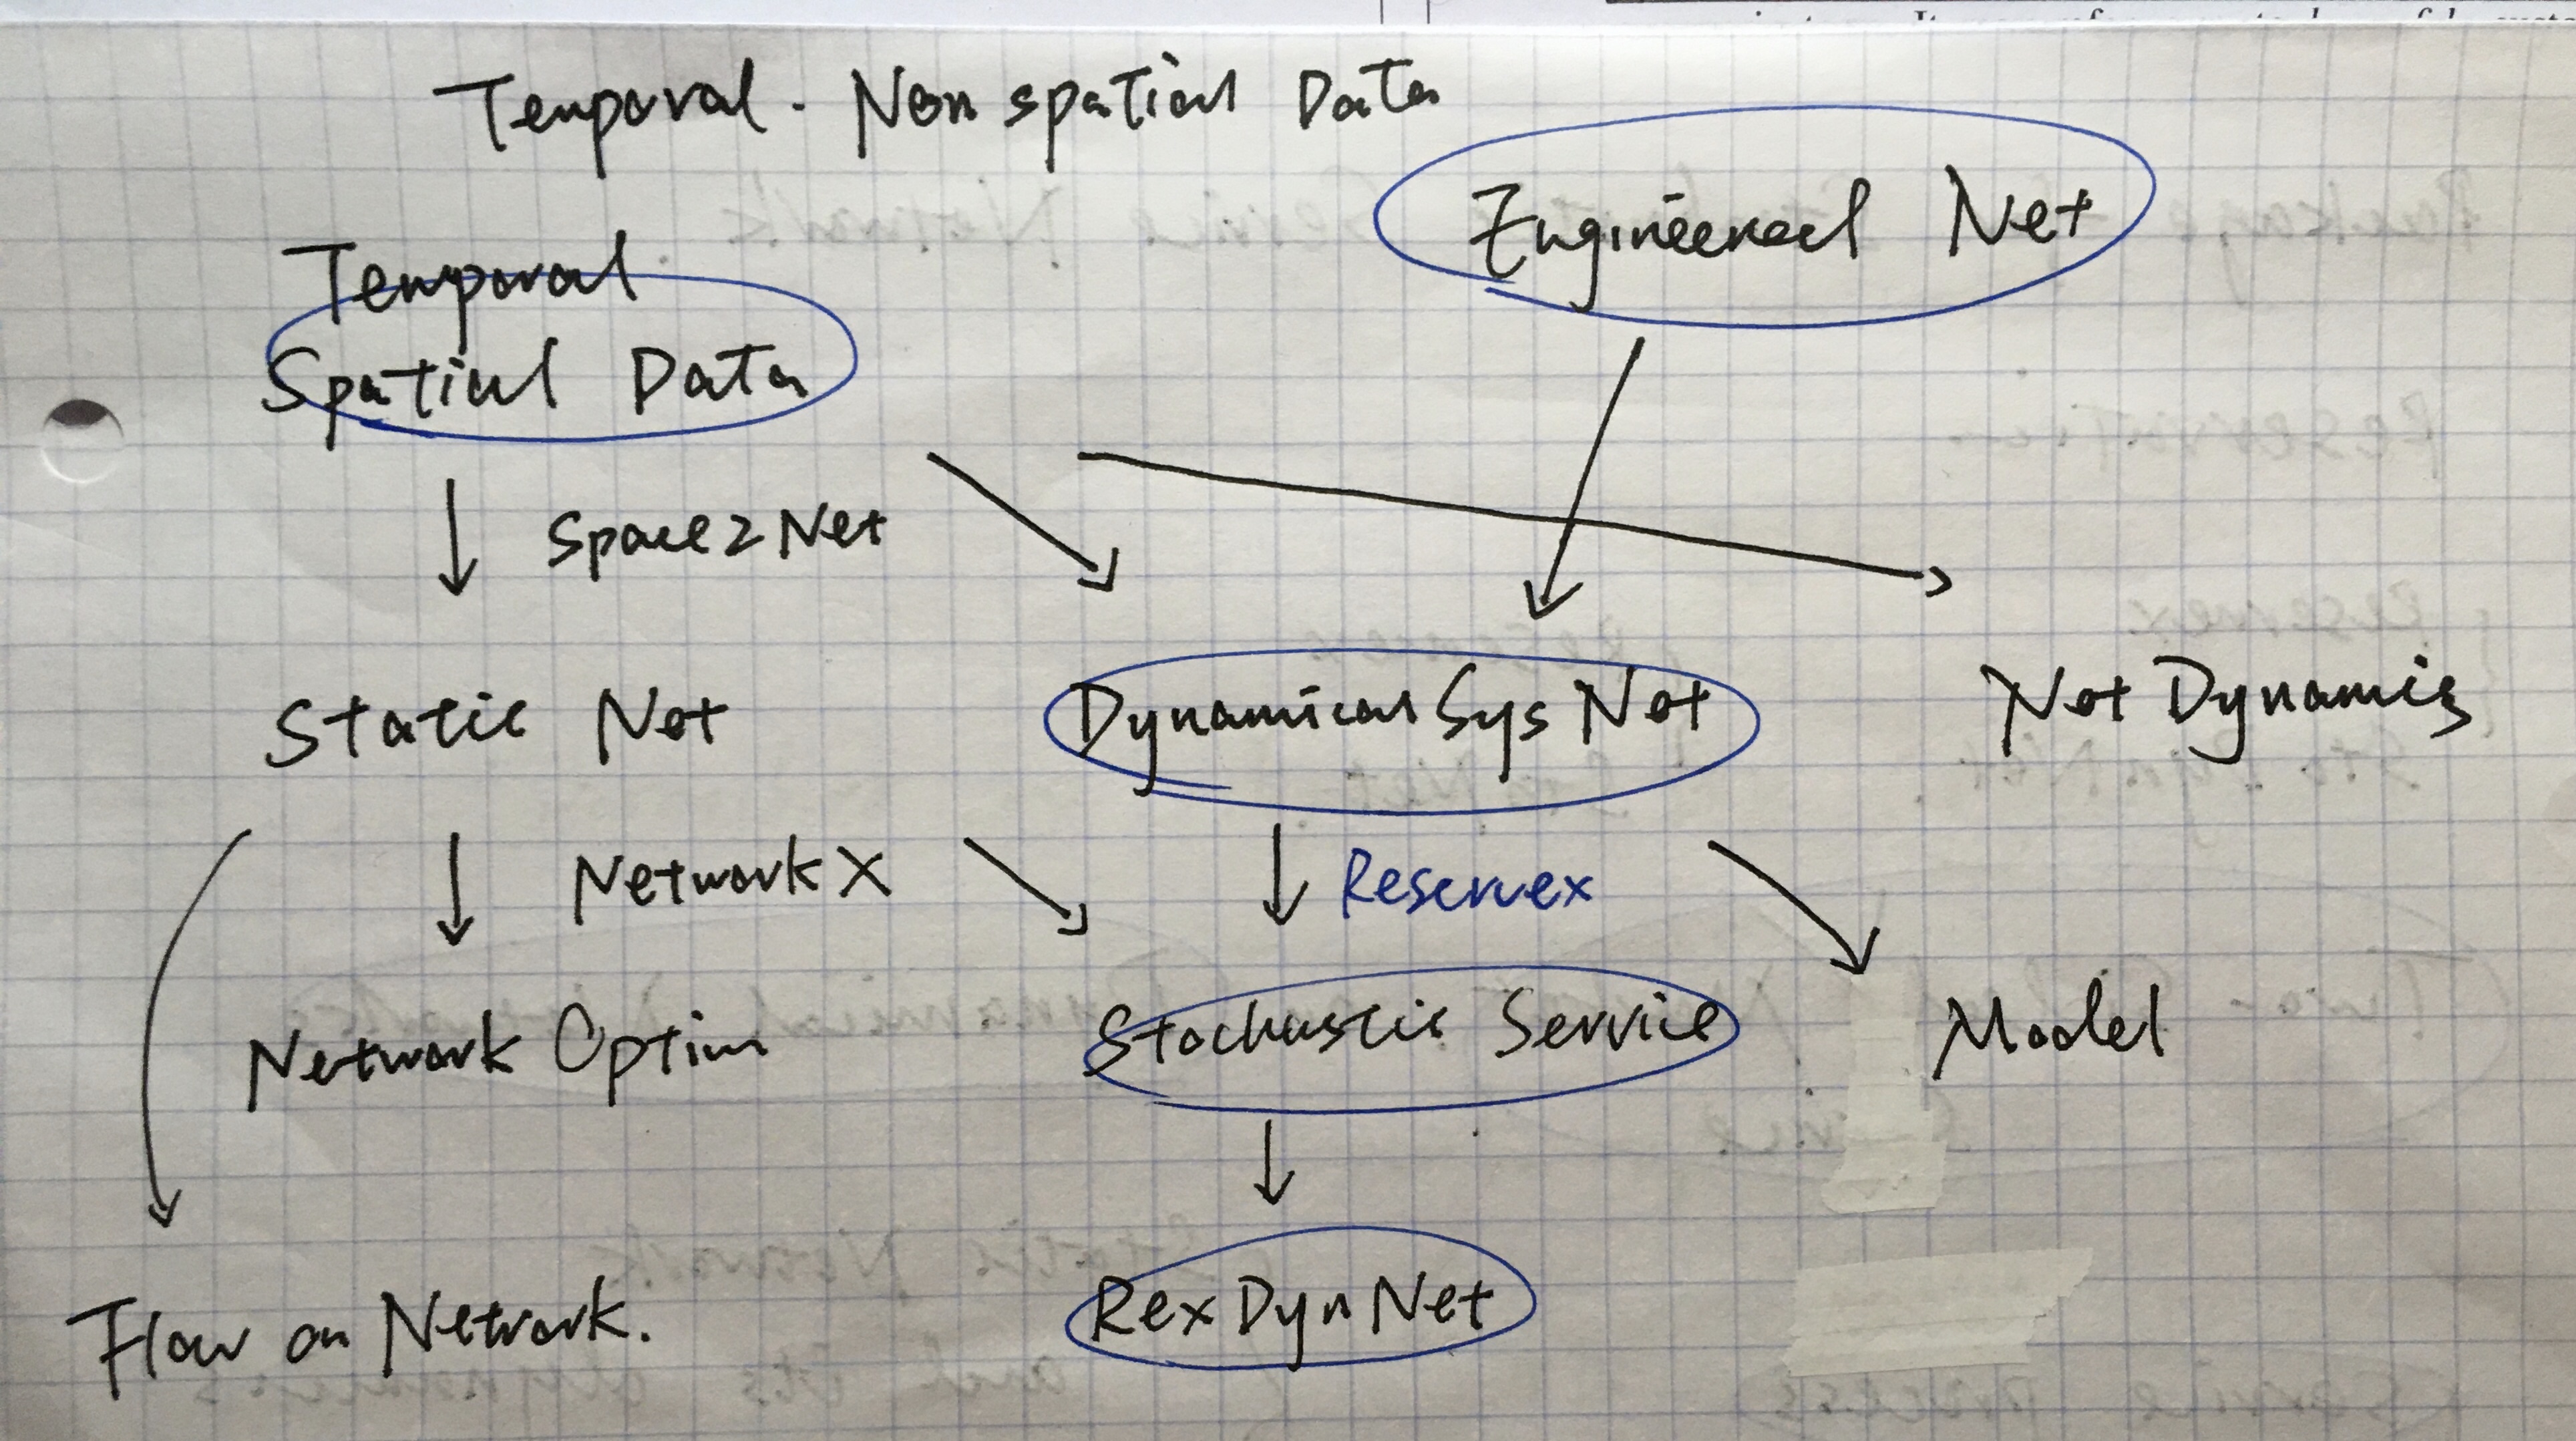 Temporal. Non spatial Data
Engineered Net
Temporal
Spatial Data
Space2Net
Static Net
Dynamical Sys Net
Net Dynamics
NetworkX
Reservex
Network Optim
Stochastic Service
Model
Flow on Network.
RexDynNet